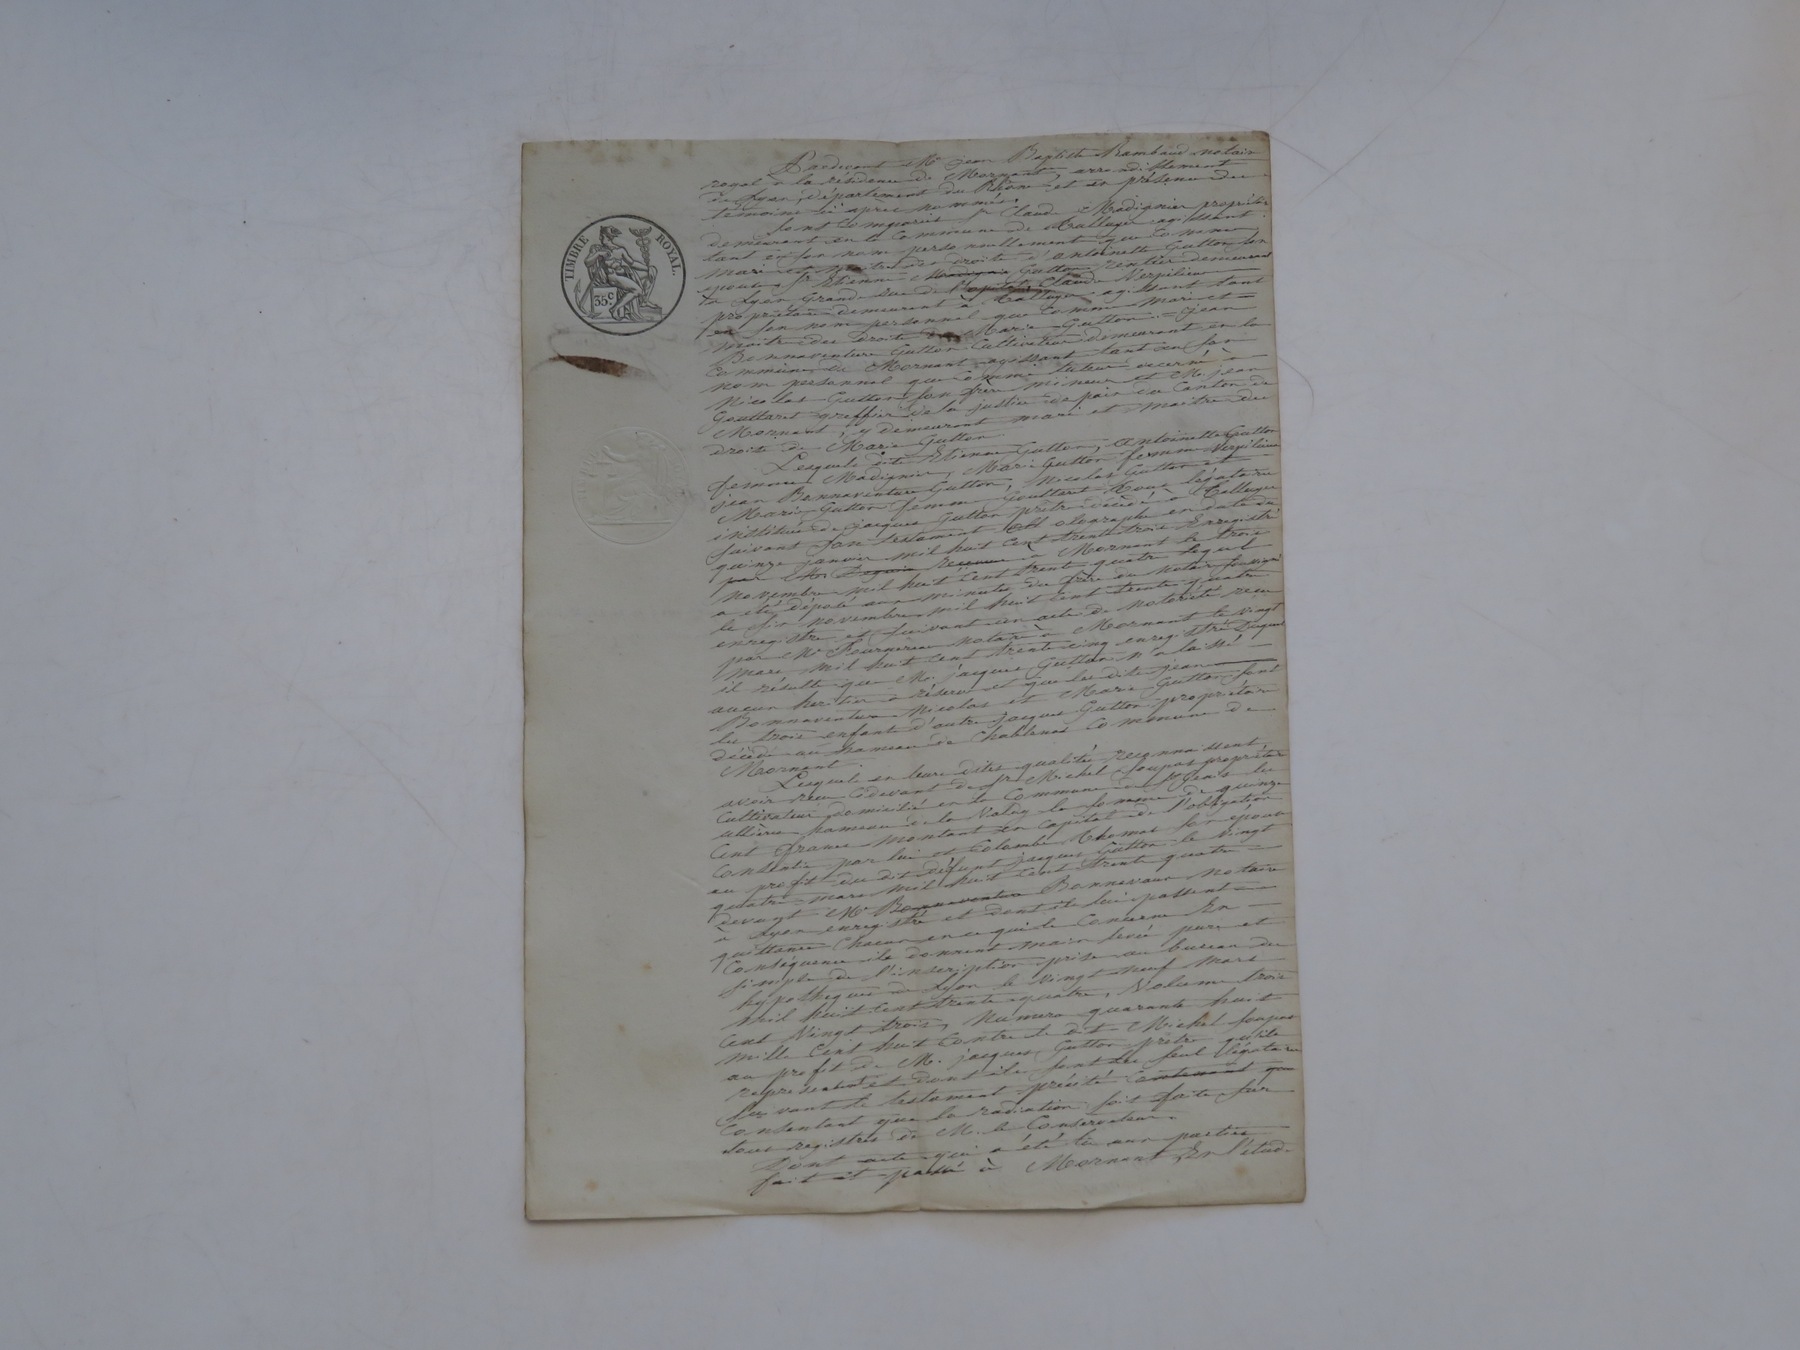 TIMBRE ROYAL.
35c
Pardevant Me jean Baptiste Rambaud notaire
royal à la résidence de Mornant, arrondissement
de Lyon, département du Rhône et en présence des
témoins ci après nommés,
Sont Comparus Sr Claude Madignier propriétaire
demeurant en la Commune de Talluyer agissant
tant en son nom personnellement que Comme
mari et maitre des droits d'antoinette Gutton son
épouse, Sr Etienne Gutton rentier demeurant
à Lyon Grande rue de l'hopital, Claude Verpilieux
propriétaire demeurant à Talluyer agissant tant
en son nom personnel que Comme mari et
maitre des droits de Marie Gutton = jean
Bonnaventure Gutton Cultivateur demeurant en la
Commune de Mornant agissant tant en son
nom personnel que Comme tuteur décerné à
Nicolas Gutton son frère mineur et M. jean
Gouttaret greffier de la justice de paix du Canton de
Mornant, y demeurant mari et maitre des
droits de Marie Gutton.
Lesquels dit Etienne Gutton, antoinette Gutton
femme Madignier, Marie Gutton femme Verpilieux
jean Bonnaventure Gutton, Nicolas Gutton et
Marie Gutton femme Gouttaret tous légataires
institués de jacques Gutton prêtre décédé à Talluyer
suivant son testament olographe en date du
quinze janvier mil huit cent trente trois Enregistré
à Mornant le trois
novembre mil huit Cent trente quatre lequel
a été déposé aux minutes du frère du notaire soussigné
le six novembre mil huit cent trente quatre
enregistré et suivant un acte de notoriété reçu
par Me Fournereau notaire à Mornant le vingt
mars mil huit cent trente cinq enregistré Duquel
il résulte que M. jacques Gutton n'a laissé
aucun heritier à réserve et que les dits jean
Bonnaventure Nicolas et Marie Gutton sont
les trois enfants d'autre jacques Gutton propriétaire
décédé au hameau de Chablenas Commune de
Mornant.
Lesquels en leurs dites qualités reconnaissent
avoir reçu Cidevant de Sr Michel Soupat propriétaire
Cultivateur domicilié en la Commune de St jean
hameau de la Valey la somme de quinze
Cent francs montant en Capital de l'obligation
Consentie par lui et Colombe Thomas son épouse
au profit du dit défunt jacques Gutton le vingt
quatre mars mil huit Cent trente quatre
devant Me Bonnaventure Bonnevaux notaire
à Lyon enregistré et dont ils lui passent
quittance Chacun en ce qui le Concerne En
Conséquence ils donnent main levée pure et
simple de l'inscription prise au bureau des
hypothèques de Lyon le vingt neuf mars
mil huit Cent trente quatre, Volume trois
Cent Vingt trois, Numero quarante huit
mille Cent huit Contre le dit Michel Soupat
au profit de M. jacques Gutton prêtre qu'ils
représentent et dont ils sont les seuls légataires
suivant le testament précité
Consentant que la radiation soit faite sur
tous registres de M. le Conservateur.
Dont acte qui a été lu aux parties
fait et passé à Mornant En l'étude